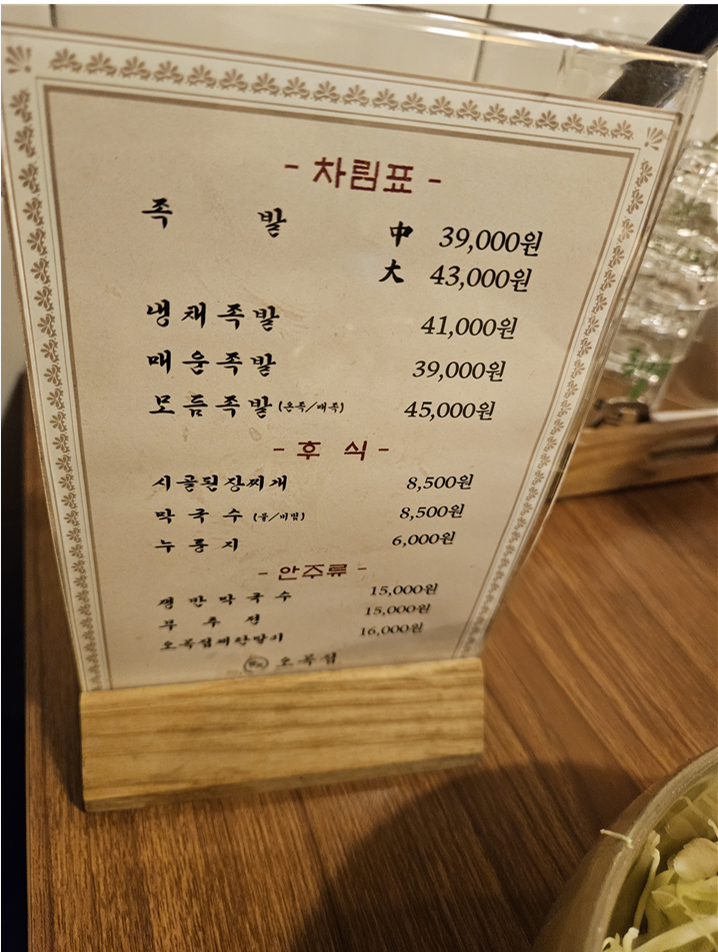 - 차림표 -
족 발 中 39,000원
大 43,000원
냉채족발 41,000원
매운족발 39,000원
모듬족발 (온족/매족) 45,000원
- 후 식 -
시골된장찌개 8,500원
막국수 (물/비빔) 8,500원
누룽지 6,000원
- 안주류 -
쟁반막국수 15,000원
부추전 15,000원
16,000원
오족섬